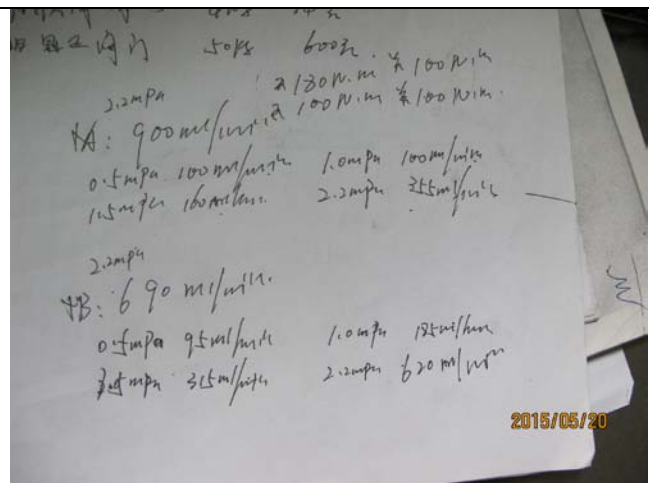 阀门 50kg 600元
开180N.m 关100N.m
2.2mpa 开100N.m 关100N.m.
A: 900ml/min
0.5mpa 100ml/min 1.0mpa 100ml/min
1.5mpa 160ml/min 2.2mpa 355ml/min
2.2mpa
B: 690 ml/min.
0.5mpa 95ml/min 1.0mpa 185ml/min
1.5mpa 315ml/min 2.2mpa 620ml/min
2015/05/20